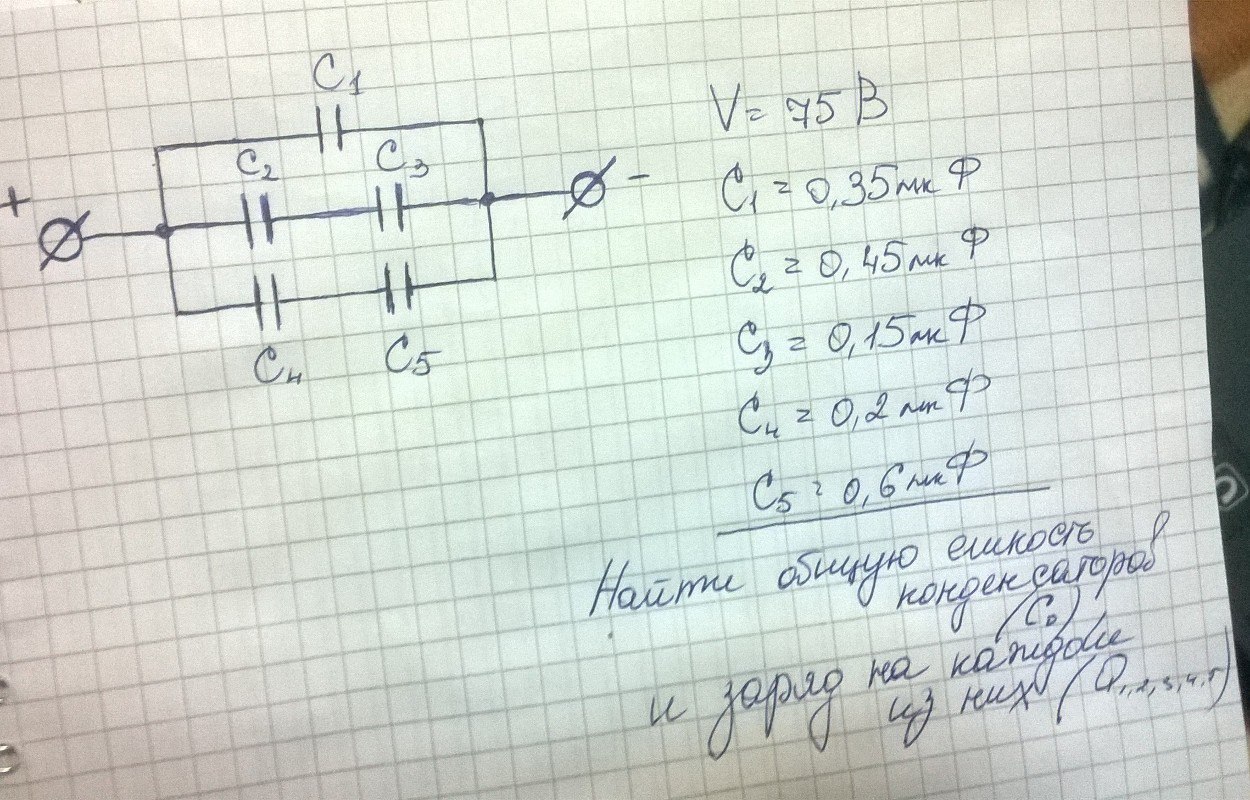 C₁
C₂ C₃
+ -
C₄ C₅
V = 75 В
C₁ = 0,35мкФ
C₂ = 0,45мкФ
C₃ = 0,15мкФ
C₄ = 0,2мкФ
C₅ = 0,6мкФ
Найти общую емкость
конденсаторов
(C₀)
и заряд на каждом
из них (Q₁,₂,₃,₄,₅)